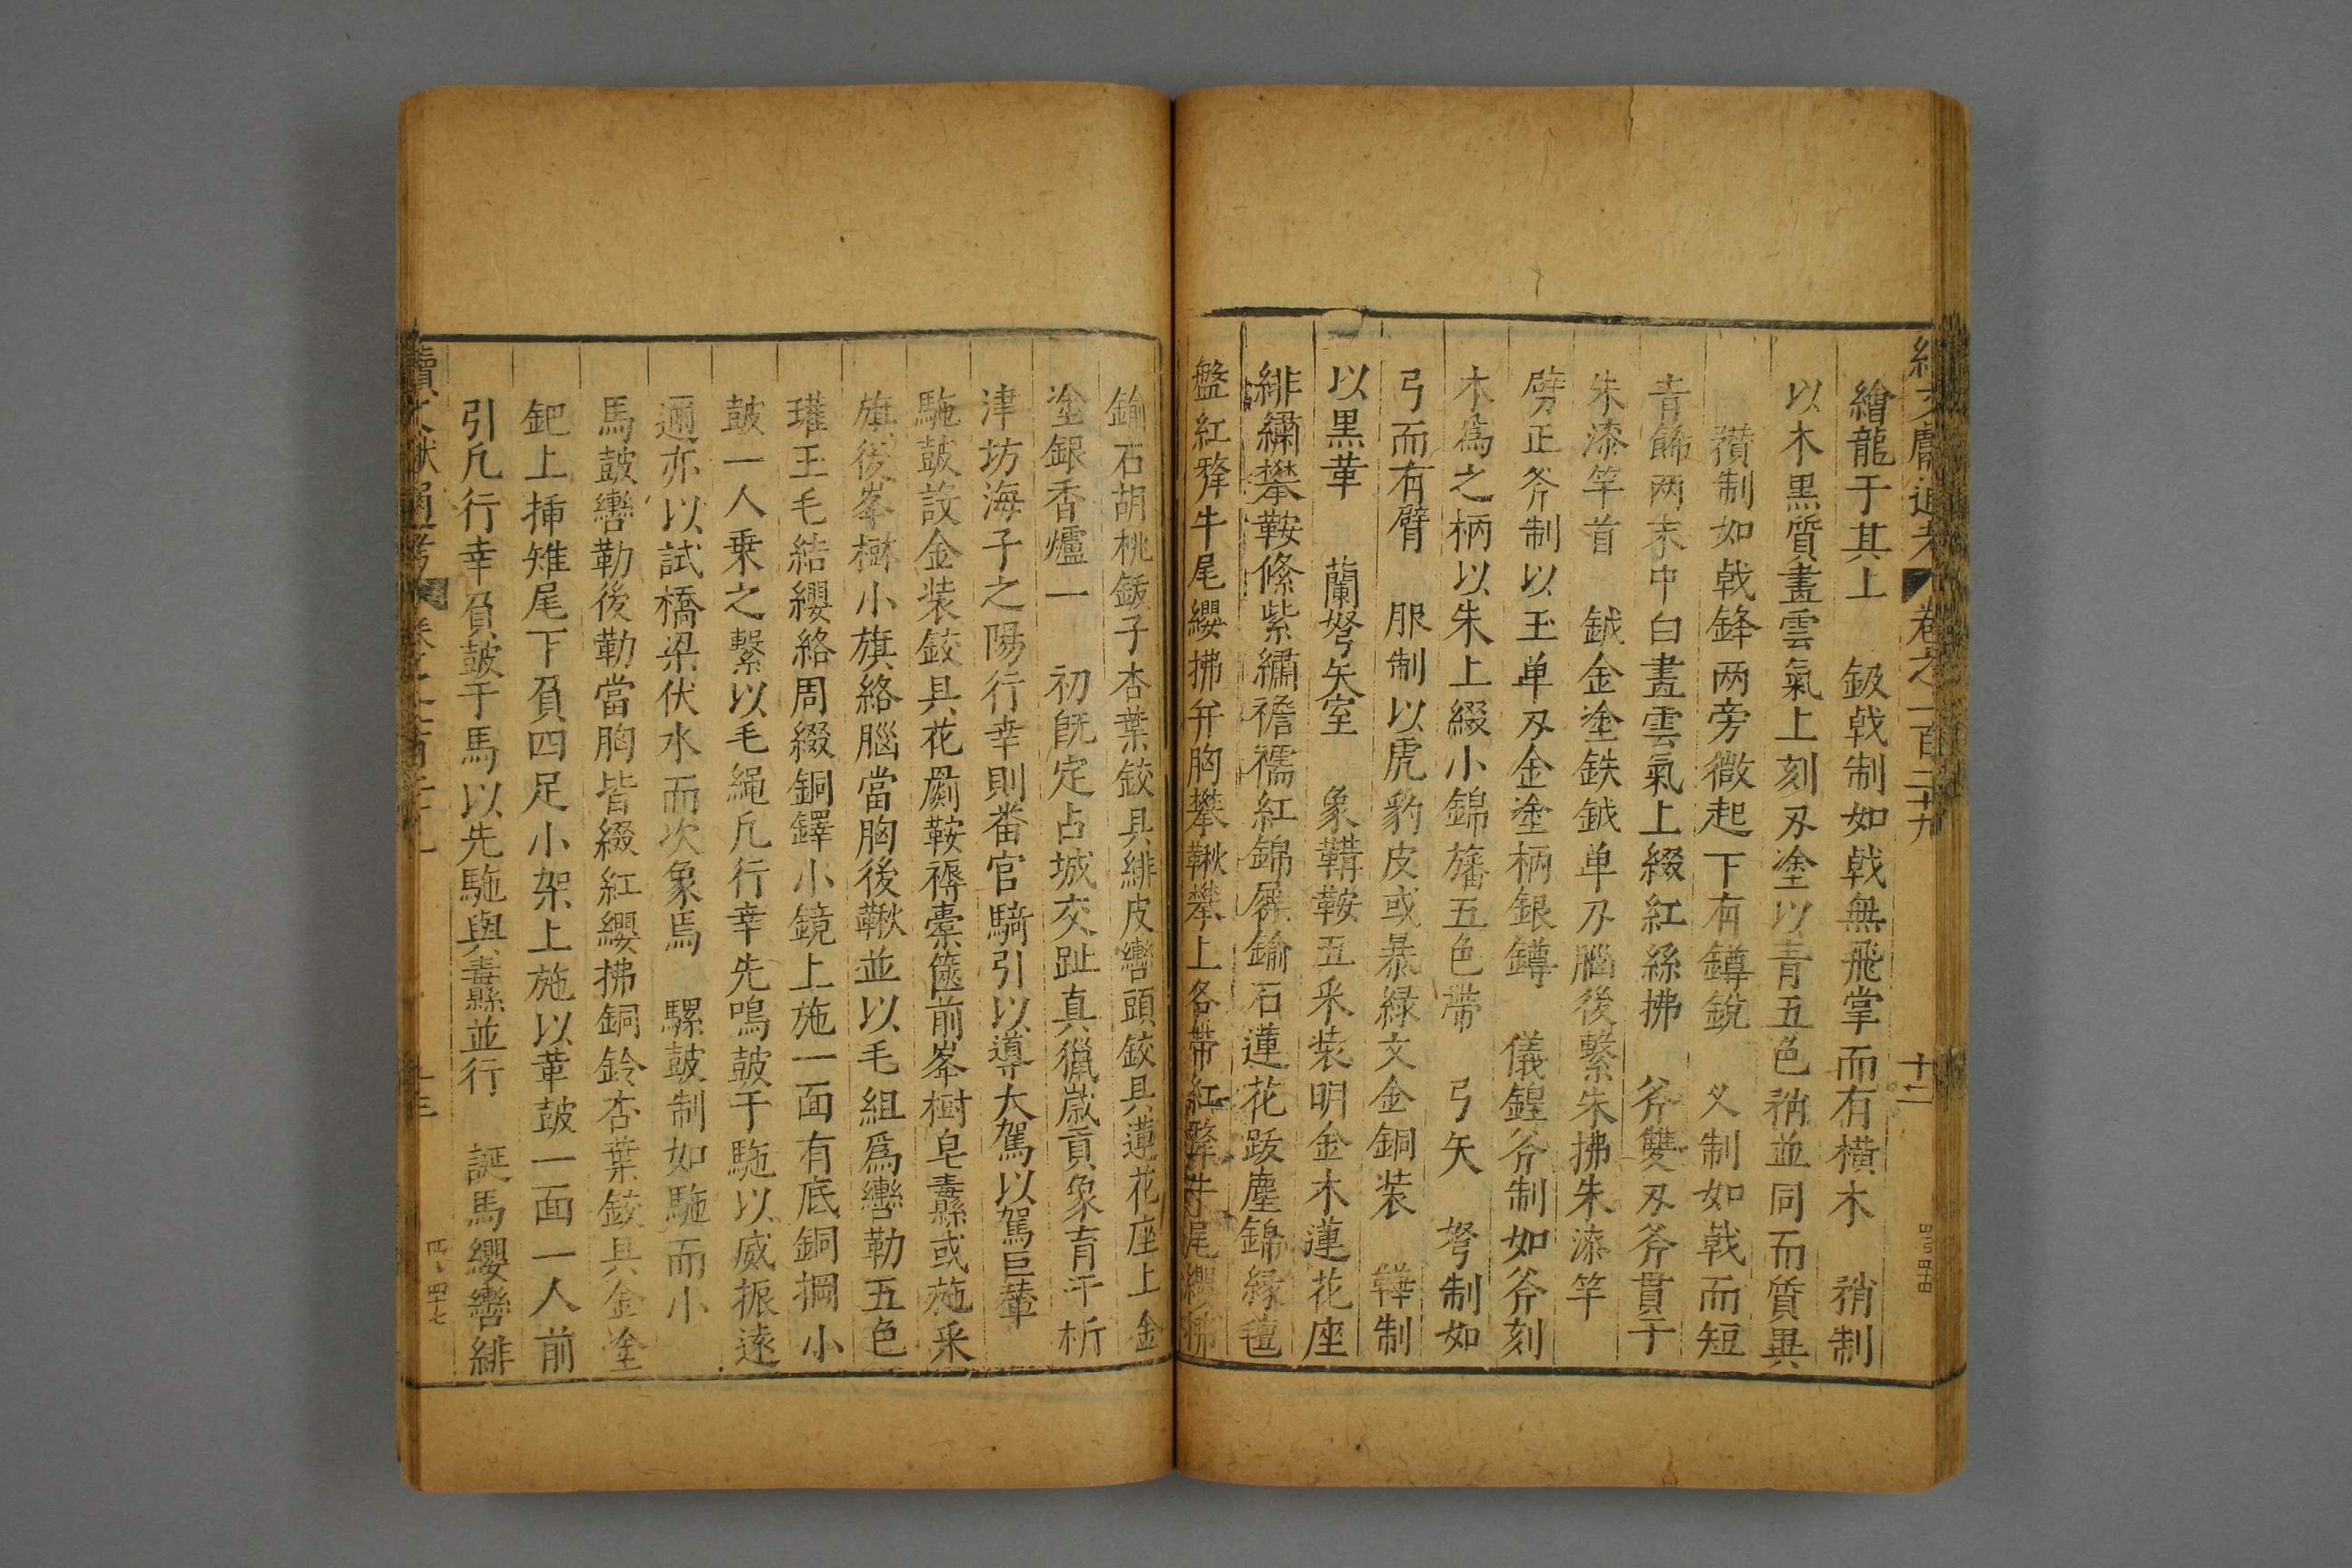 續文獻通考 卷之一百二十九 十二
繪龍于其上 鈒戟制如戟無飛掌而有橫木 矟制
以木黒質畫雲氣上刻刃塗以青五色矟並同而質異
穳制如戟鋒两旁微起下有鐏銳 㐅制如戟而短
青飾两末中白畫雲氣上綴紅絲拂 斧雙刃斧貫于
朱漆竿首 鉞金塗鉄鉞单刃腦後繫朱拂朱漆竿
劈正斧制以玉单刃金塗柄銀鐏 儀鍠斧制如斧刻
木爲之柄以朱上綴小錦旛五色帶 弓矢 弩制如
弓而有臂 服制以虎豹皮或暴緑文金銅装 鞬制
以黒革 蘭弩矢室 象鞲鞍五釆装明金木蓮花座
緋繡攀鞍絛紫繡襜襦紅錦屜鍮石蓮花跋塵錦縁氊
盤紅犛牛尾纓拂并胸攀鞦攀上各帶紅犛牛尾纓拂
鍮石胡桃鈸子杏葉鉸具緋皮轡頭鉸具蓮花座上金
塗銀香爐一 初旣定占城交趾真臘歲貢象育于析
津坊海子之陽行幸則畨官騎引以導大駕以駕巨輦
駞鼓設金装鉸具花罽鞍褥橐篋前峯樹皂纛或施釆
旗後峯樹小旗絡腦當胸後鞦並以毛組爲轡勒五色
瓘玉毛結纓絡周綴銅鐸小鏡上施一面有底銅掆小
鼓一人乗之繫以毛繩凡行幸先鳴鼓于駞以威振遠
邇亦以試橋梁伏水而次象焉 騾鼓制如駞而小
馬鼓轡勒後勒當胸皆綴紅纓拂銅鈴杏葉鉸具金塗
鈀上揷雉尾下負四足小架上施以革鼓一面一人前
引凡行幸負鼓于馬以先駞與纛並行 誕馬纓轡緋
續文獻通考 卷之一百二十九 十三